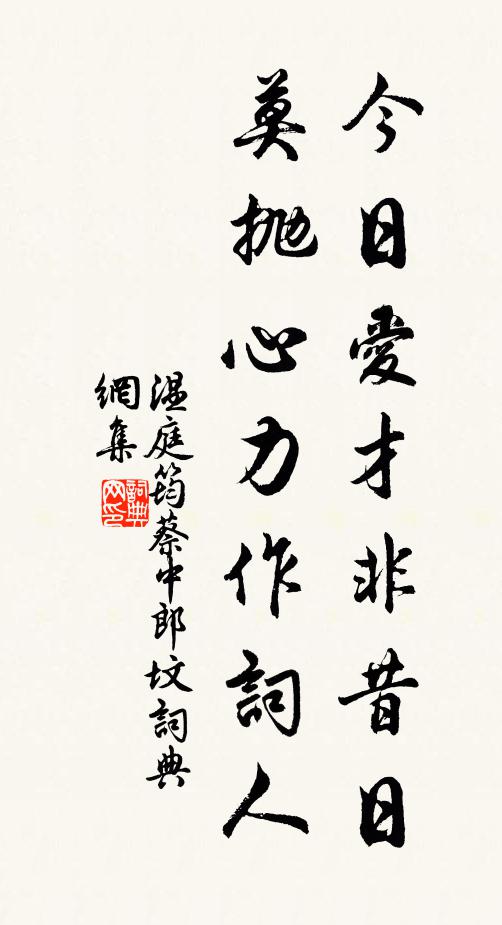 今日愛才非昔日
莫抛心力作詞人
温庭筠蔡中郎坟詞典
網集
詞典
网印